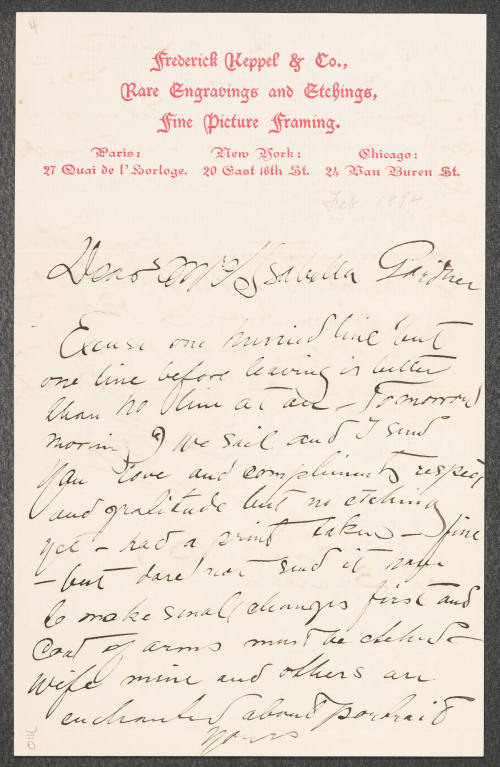 Frederick Keppel & Co.,
Rare Engravings and Etchings,
Fine Picture Framing.
Paris: New York: Chicago:
27 Quai de l'Horloge. 20 East 16th St. 24 Van Buren St.
Feb 1894
Dear Mrs Isabella Gardner
Excuse one hurried line but
one line before leaving is better
than no line at all – Tomorrow
morning we sail and I send
you love and compliments respect
and gratitude but no etching
yet – had a print taken – fine
– but dare not send it have
to make small changes first and
Coat of arms must be etched –
Wife mine and others are
enchanted about portrait
Yours